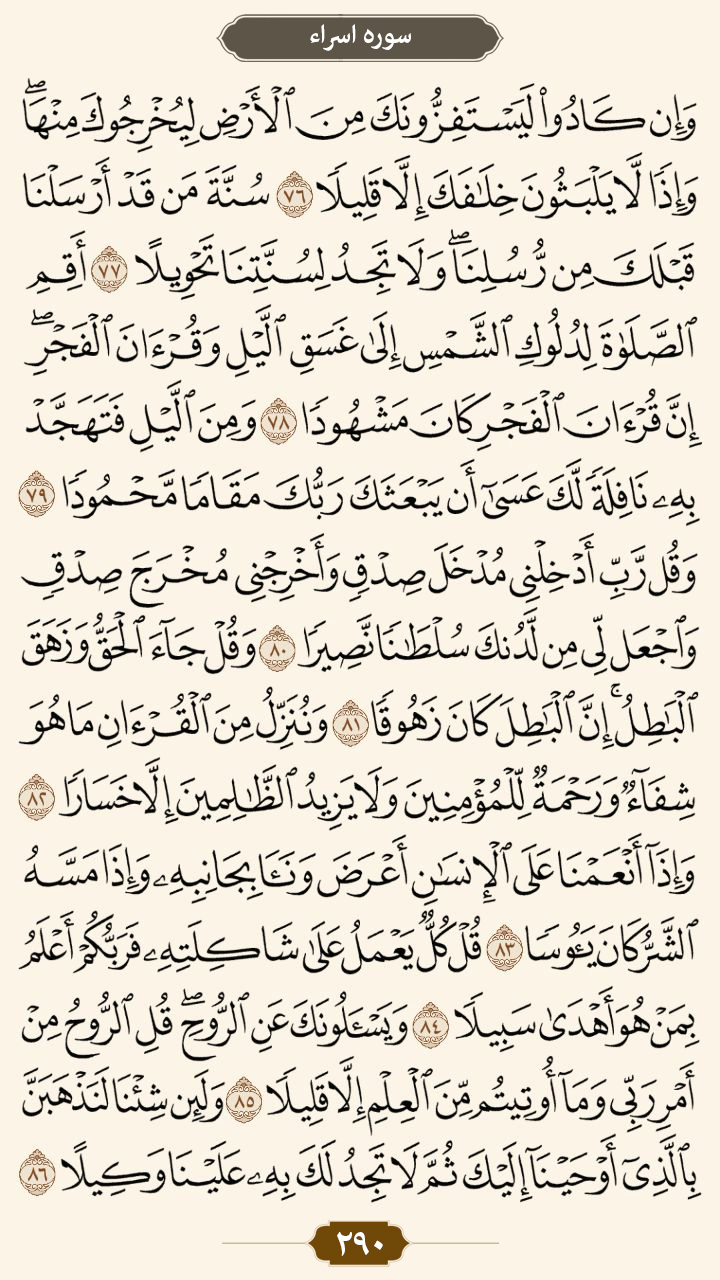 سوره اسراء
وَإِن كَادُوا۟ لَيَسْتَفِزُّونَكَ مِنَ ٱلْأَرْضِ لِيُخْرِجُوكَ مِنْهَاۖ
وَإِذًا لَّا يَلْبَثُونَ خِلَٰفَكَ إِلَّا قَلِيلًا ٧٦ سُنَّةَ مَن قَدْ أَرْسَلْنَا
قَبْلَكَ مِن رُّسُلِنَاۖ وَلَا تَجِدُ لِسُنَّتِنَا تَحْوِيلًا ٧٧ أَقِمِ
ٱلصَّلَوٰةَ لِدُلُوكِ ٱلشَّمْسِ إِلَىٰ غَسَقِ ٱلَّيْلِ وَقُرْءَانَ ٱلْفَجْرِۖ
إِنَّ قُرْءَانَ ٱلْفَجْرِ كَانَ مَشْهُودًا ٧٨ وَمِنَ ٱلَّيْلِ فَتَهَجَّدْ
بِهِۦ نَافِلَةً لَّكَ عَسَىٰٓ أَن يَبْعَثَكَ رَبُّكَ مَقَامًا مَّحْمُودًا ٧٩
وَقُل رَّبِّ أَدْخِلْنِى مُدْخَلَ صِدْقٍ وَأَخْرِجْنِى مُخْرَجَ صِدْقٍ
وَٱجْعَل لِّى مِن لَّدُنكَ سُلْطَٰنًا نَّصِيرًا ٨٠ وَقُلْ جَآءَ ٱلْحَقُّ وَزَهَقَ
ٱلْبَٰطِلُۚ إِنَّ ٱلْبَٰطِلَ كَانَ زَهُوقًا ٨١ وَنُنَزِّلُ مِنَ ٱلْقُرْءَانِ مَا هُوَ
شِفَآءٌ وَرَحْمَةٌ لِّلْمُؤْمِنِينَ وَلَا يَزِيدُ ٱلظَّٰلِمِينَ إِلَّا خَسَارًا ٨٢
وَإِذَآ أَنْعَمْنَا عَلَى ٱلْإِنسَٰنِ أَعْرَضَ وَنَـَٔا بِجَانِبِهِۦ وَإِذَا مَسَّهُ
ٱلشَّرُّ كَانَ يَـُٔوسًا ٨٣ قُلْ كُلٌّ يَعْمَلُ عَلَىٰ شَاكِلَتِهِۦ فَرَبُّكُمْ أَعْلَمُ
بِمَنْ هُوَ أَهْدَىٰ سَبِيلًا ٨٤ وَيَسْـَٔلُونَكَ عَنِ ٱلرُّوحِۖ قُلِ ٱلرُّوحُ مِنْ
أَمْرِ رَبِّى وَمَآ أُوتِيتُم مِّنَ ٱلْعِلْمِ إِلَّا قَلِيلًا ٨٥ وَلَئِن شِئْنَا لَنَذْهَبَنَّ
بِٱلَّذِىٓ أَوْحَيْنَآ إِلَيْكَ ثُمَّ لَا تَجِدُ لَكَ بِهِۦ عَلَيْنَا وَكِيلًا ٨٦
٢٩٠